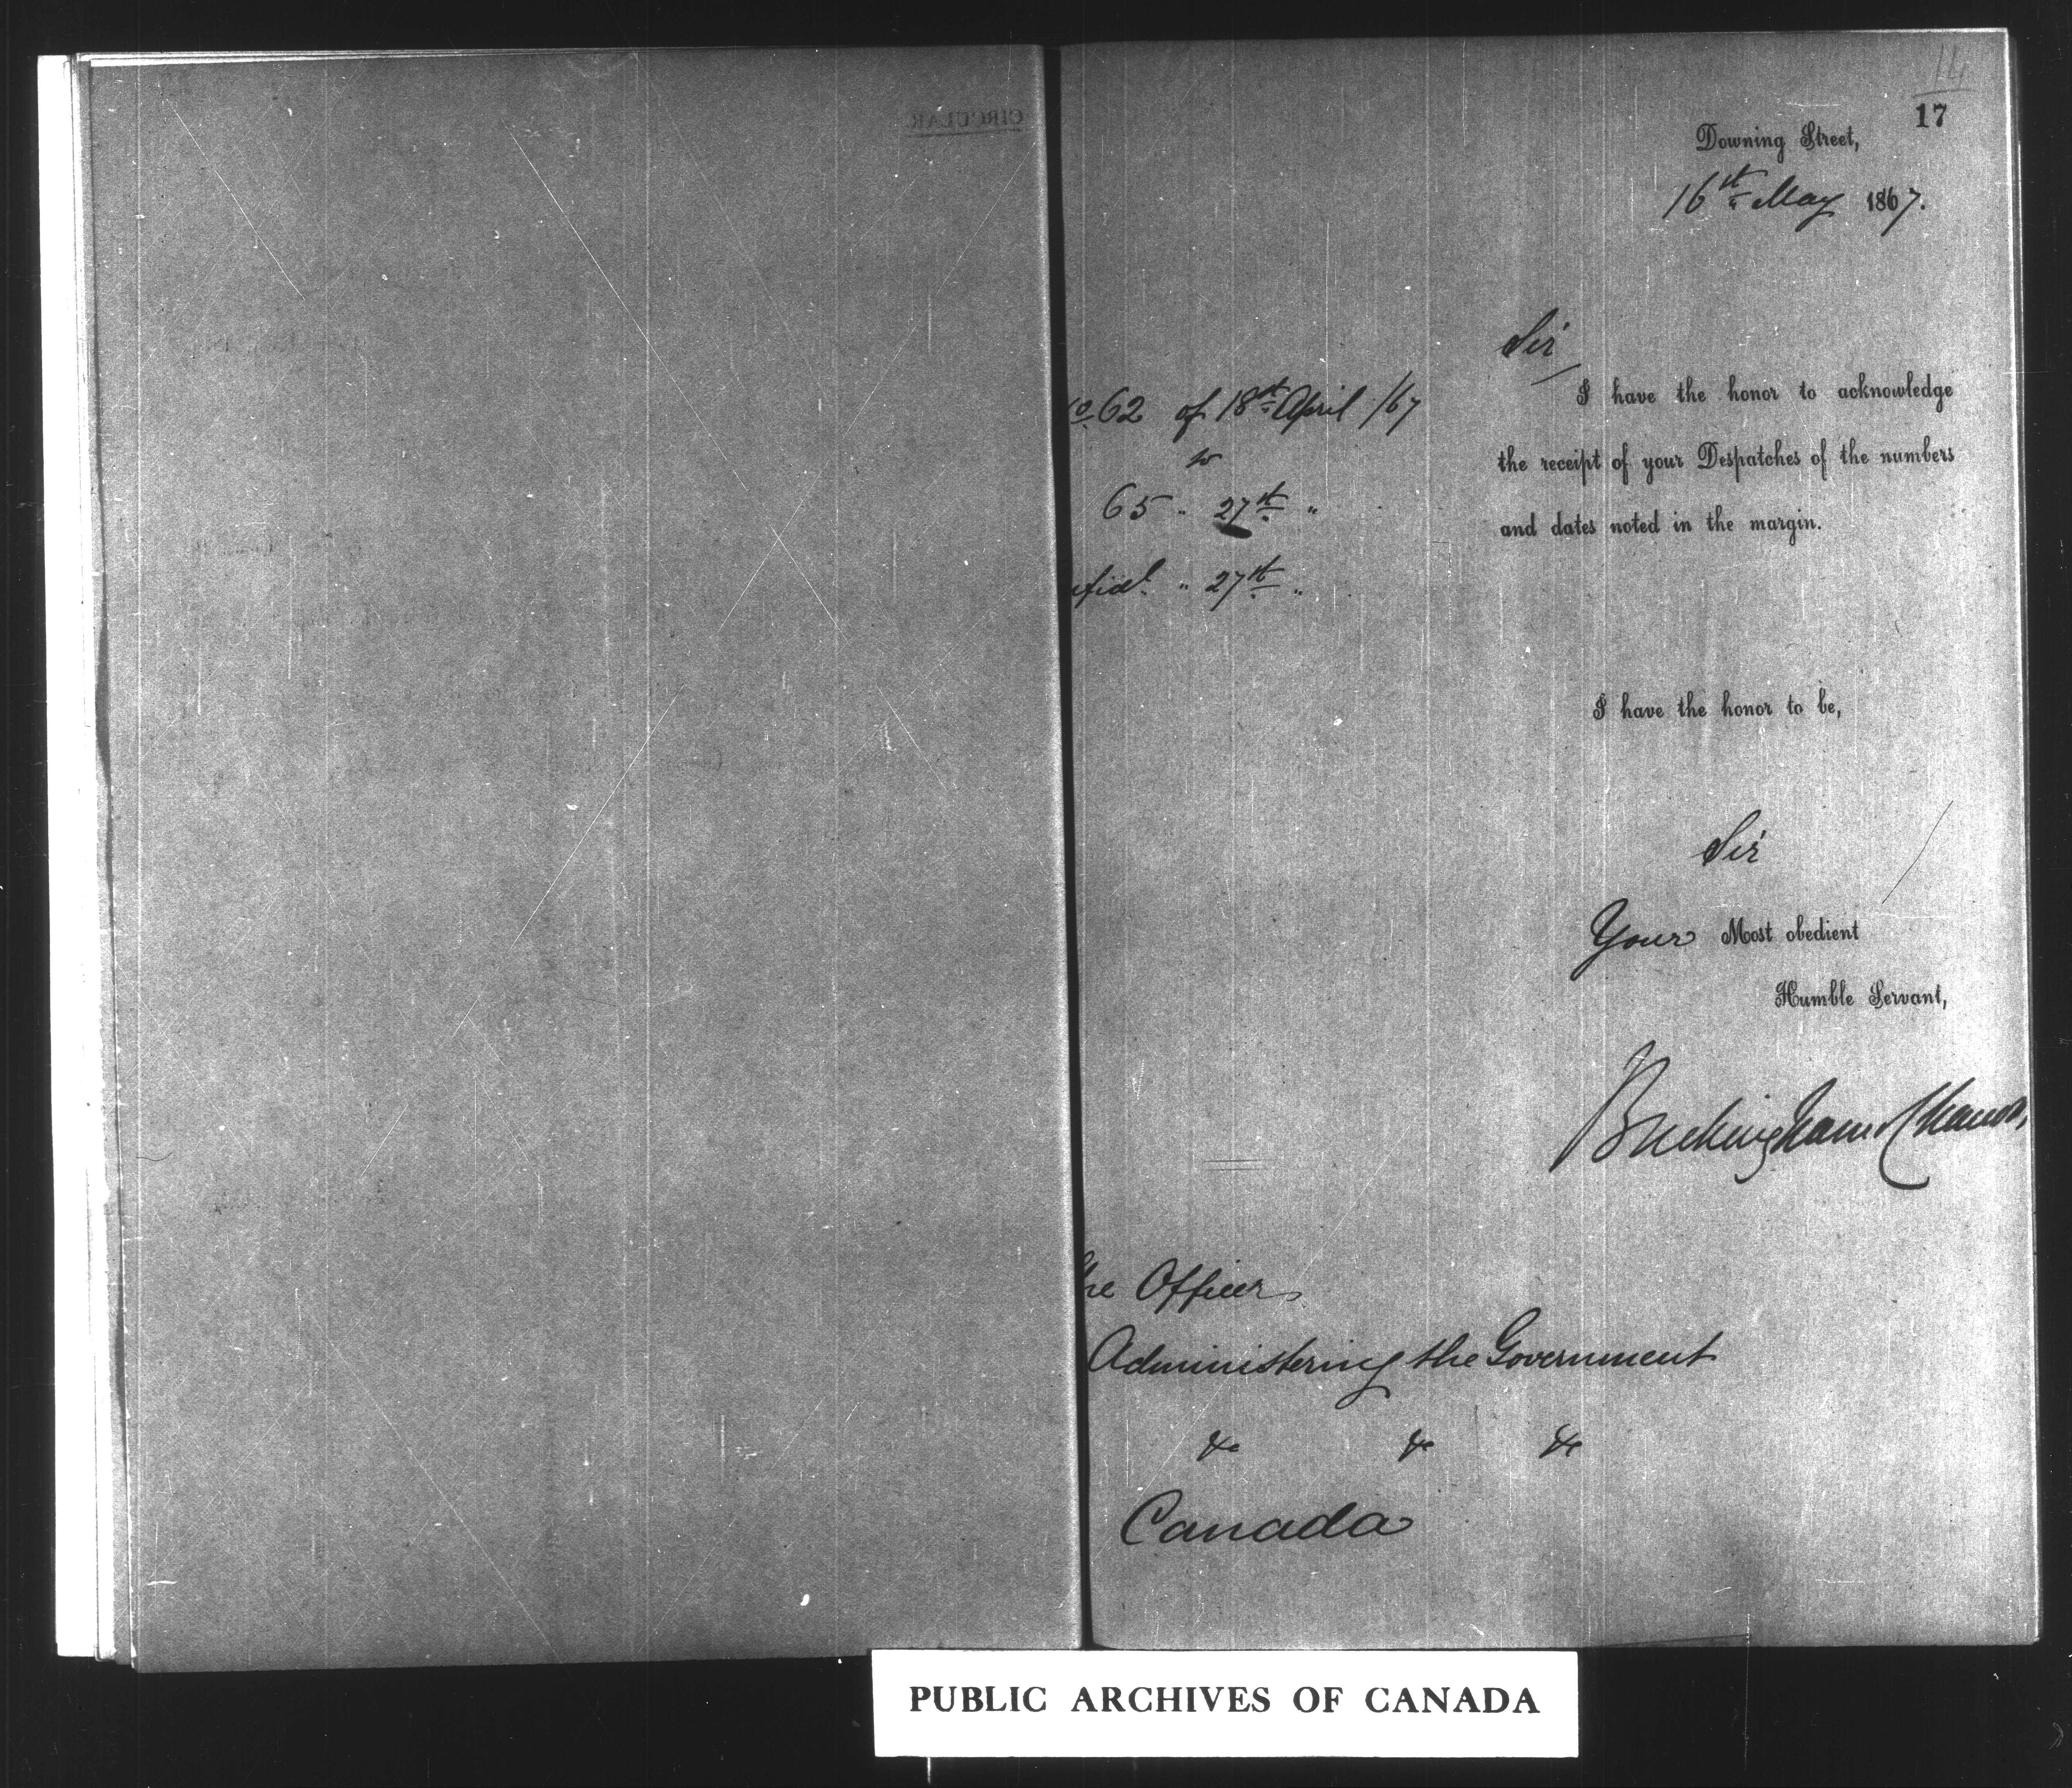 CIRCULAR
14
17
Downing Street,
16th May 1867.
Sir
o 62 of 18th April /67
to
65 " 27th "
nfidl. " 27th "
I have the honor to acknowledge
the receipt of your Despatches of the numbers
and dates noted in the margin.
I have the honor to be,
Sir
Your Most obedient
Humble Servant,
Buckingham & Chandos
he Officer
Administering the Government
&c &c &c
Canada
PUBLIC ARCHIVES OF CANADA